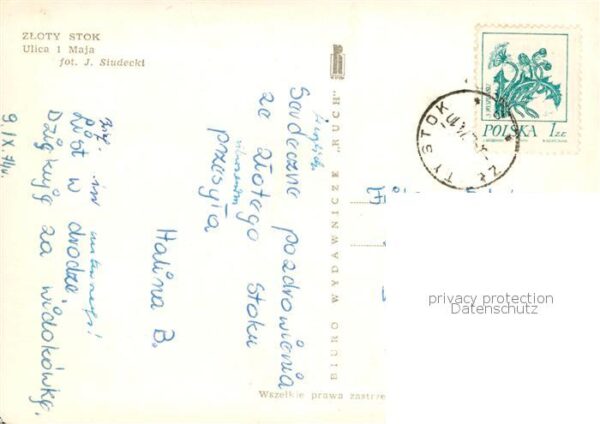 ZŁOTY STOK
Ulica 1 Maja
fot. J. Siudecki
Serdeczne pozdrowienia
ze Złotego Stoku
przesyła
Halina B.
List w drodze,
Dziękuję za widokówkę,
BIURO WYDAWNICZE „RUCH"
POLSKA 1 ZŁ
Wszelkie prawa zastrze
privacy protection
Datenschutz